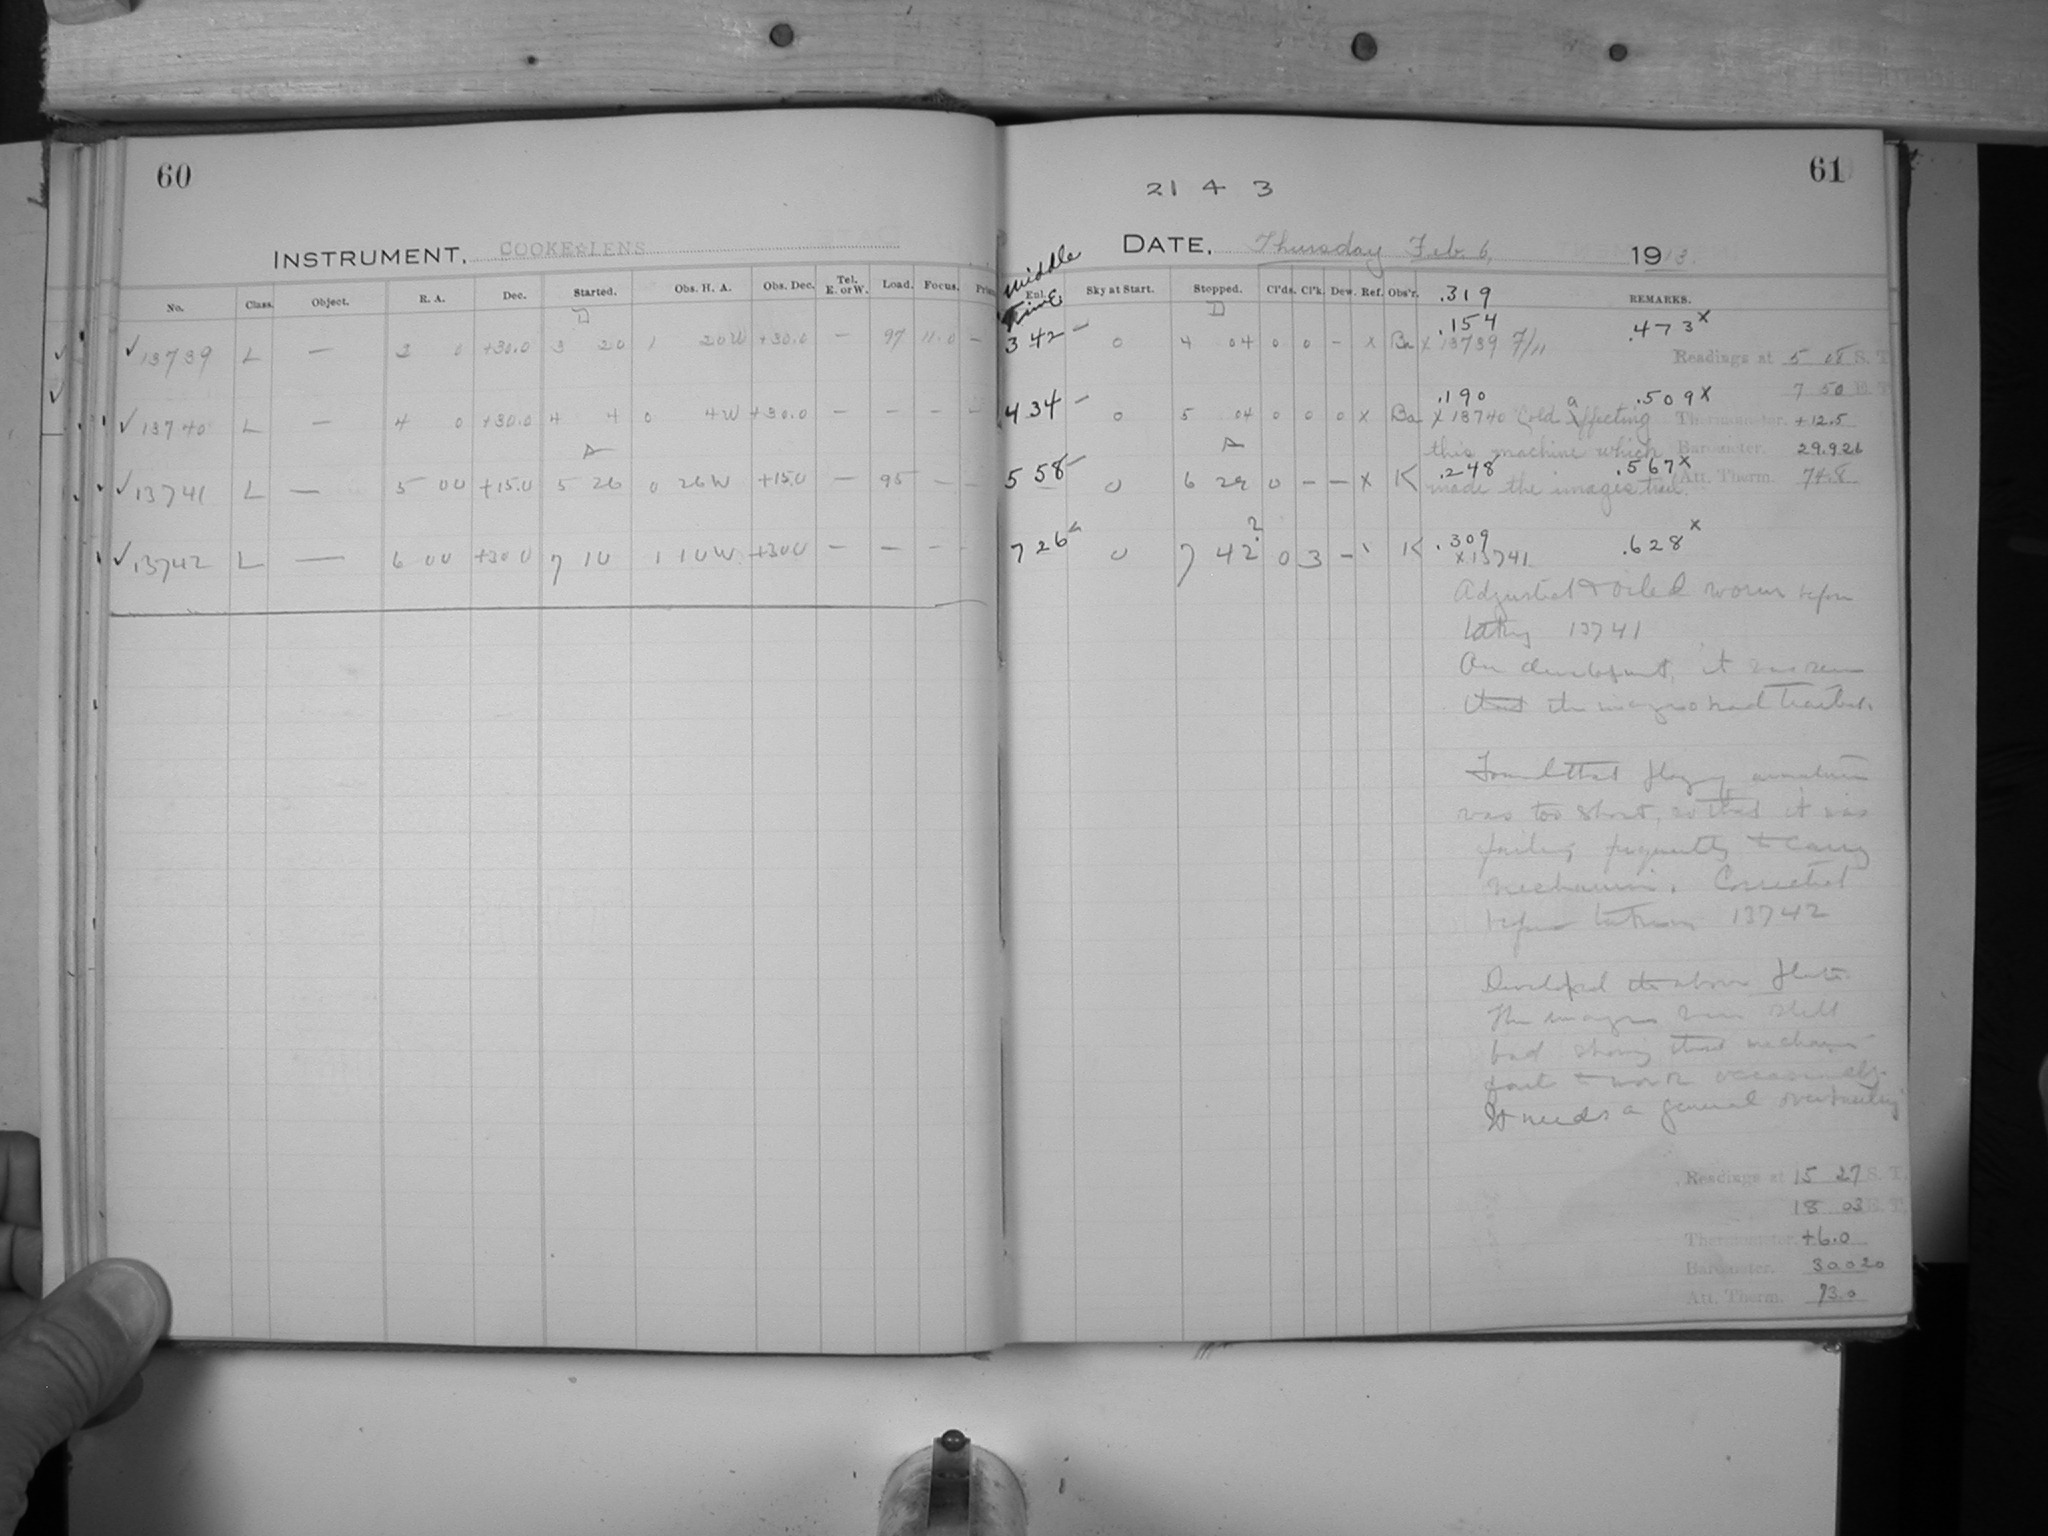 60
INSTRUMENT. COOKE LENS
No. Class. Object. R. A. Dec. Started. Obs. H. A. Obs. Dec. Tel. E. or W. Load. Focus. Prism
✓ 13739 L — 3 0 +30.0 3 20 1 20W +30.0 — 97 11.0 —
✓ 13740 L — 4 0 +30.0 4 4 0 4W +30.0 — — — —
✓ 13741 L — 5 00 +15.0 5 26 0 26W +15.0 — 95 — —
✓ 13742 L — 6 00 +30.0 7 10 1 10W +30.0 — — — -
61
21 4 3
DATE. Thursday Feb. 6, 1913.
Middle Time
Enl. Sky at Start. Stopped. Cl'ds. Cl'k. Dew. Ref. Obs'r. .319 REMARKS.
.154 .473 x
3 42 — 0 4 04 0 0 — x Ba x 13739 F/11
Readings at 5 08 S. T.
7 50 E. T.
.190 .509 x
4 34 — 0 5 04 0 0 0 x Ba x 13740 Cold affecting
Thermometer. +12.5
this machine which
Barometer. 29.926
.248 .567 x
5 58 — 0 6 29 0 — — x K made the images trail.
Att. Therm. 74.8
.309 .628 x
7 26 0 7 42? 0 3 — K x 13741
Adjusted & oiled worm before
taking 13741
On development, it was seen
that the images had trailed.
Found that play of armature
was too short, so that it was
failing frequently to carry
mechanism. Corrected
before taking 13742
Developed the above plate.
The images were still
bad showing that mechanism
fail to work occasionally.
It needs a general overhauling
Readings at 15 27 S. T.
18 03 E. T.
Thermometer. +6.0
Barometer. 30.020
Att. Therm. 73.0